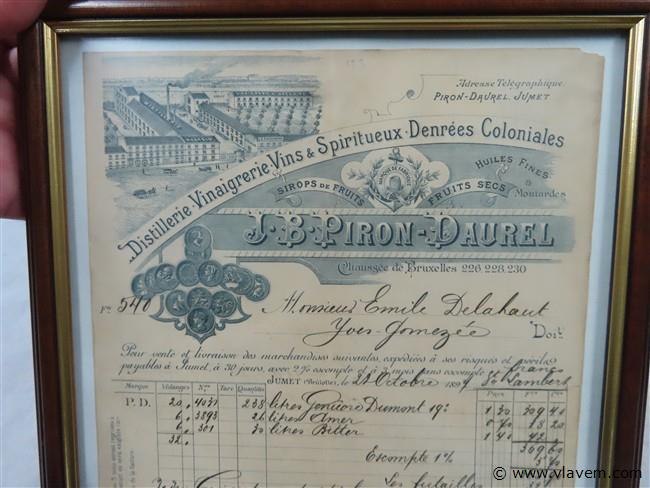 Adresse Télégraphique
PIRON-DAUREL. JUMET
Distillerie·Vinaigrerie·Vins & Spiritueux·Denrées Coloniales
SIROPS DE FRUITS
MARQUE DE FABRIQUE
FRUITS SECS
HUILES FINES
&
Moutardes
J.B. PIRON-DAUREL
Chaussée de Bruxelles 226.228.230
Fo 540
Monsieur Emile Delahaut
Yves-Gomezée
Doit
Pour vente et livraison des marchandises suivantes, expédiées à ses risques et périls
payables à Jumet, à 30 jours, avec 2% escompte et à 3 mois sans escompte
franco
JUMET (Bruliotte), le 23 Octobre 189
St Lambert
Marque Vidanges Nos Tare Quantités Prix
P.D. 20. 4031 238 litres Dumont 19° 1 30 309 40
6. 3893 26 litres Amer 0 70 18 20
6. 301 30 litres Bitter 1 40 42
32.
369 60
Escompte 1%
Les futailles
© www.vlavem.com